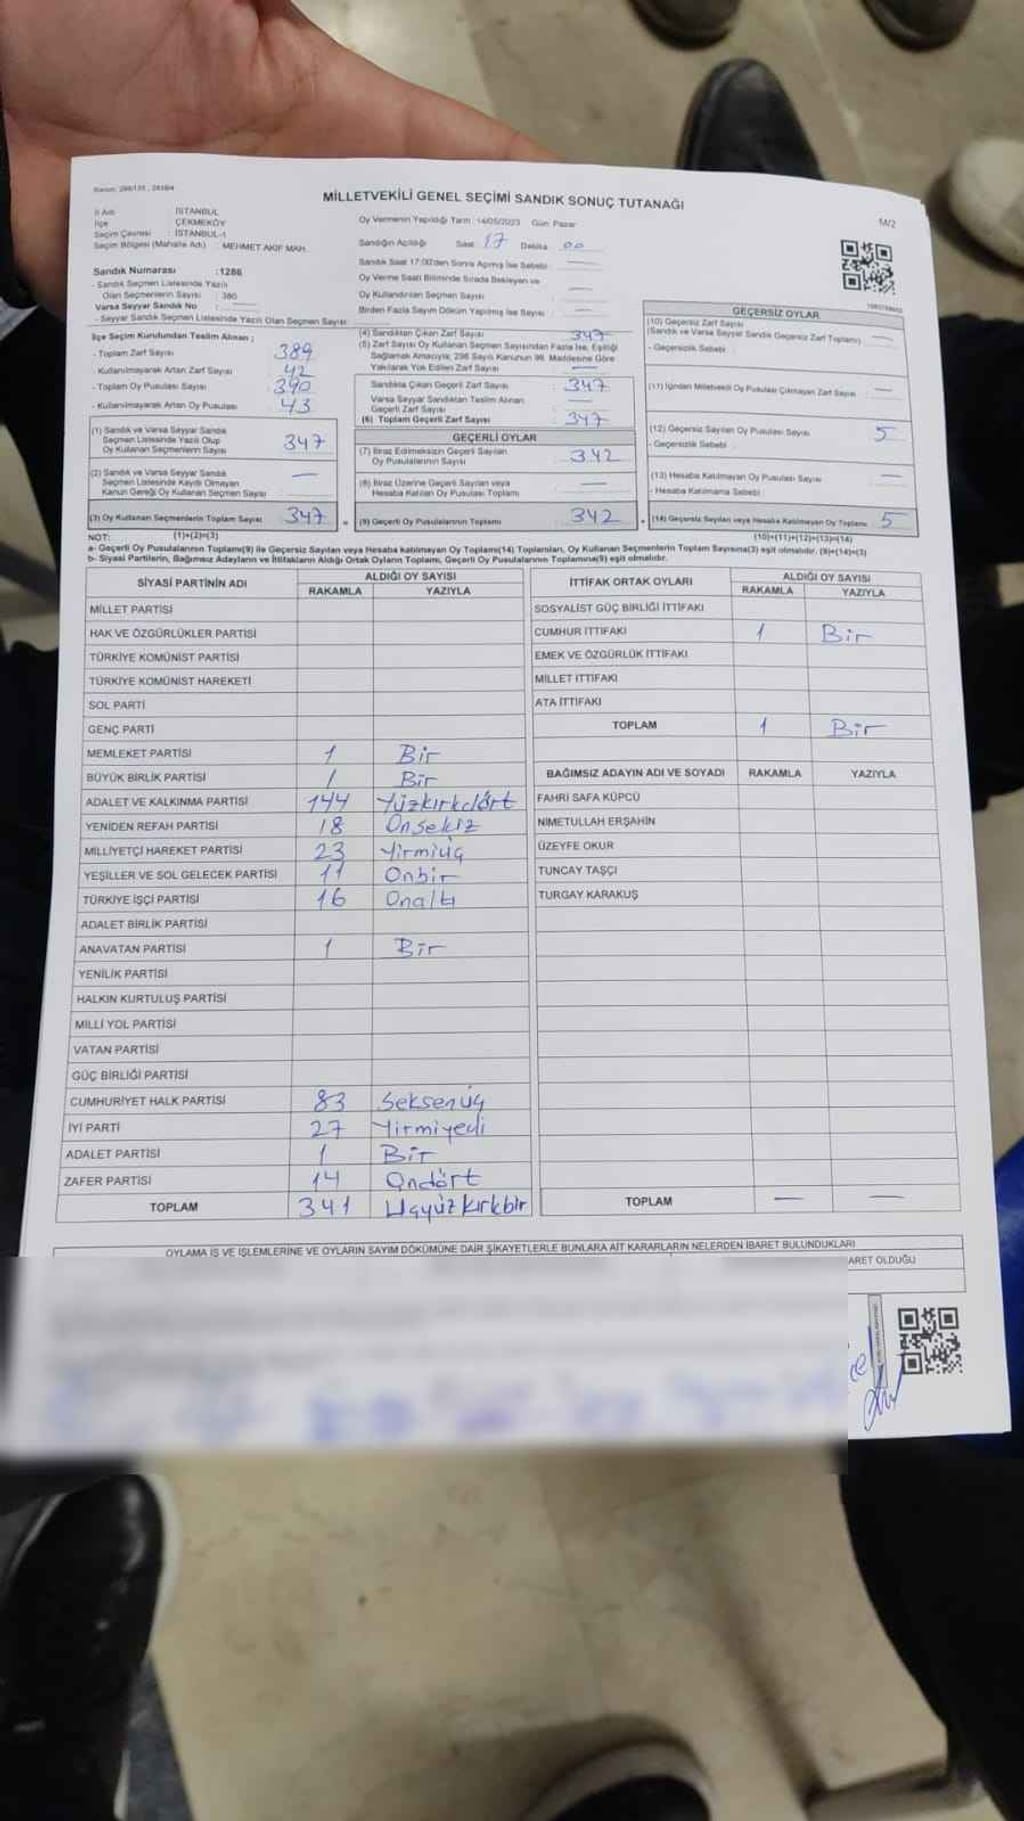 MİLLETVEKİLİ GENEL SEÇİMİ SANDIK SONUÇ TUTANAĞI
M/2
İl Adı : İSTANBUL
İlçe : ÇEKMEKÖY
Seçim Çevresi : İSTANBUL-1
Seçim Bölgesi (Mahalle Adı) : MEHMET AKİF MAH.
Sandık Numarası : 1286
- Sandık Seçmen Listesinde Yazılı
Olan Seçmenlerin Sayısı : 380
Varsa Seyyar Sandık No :
- Seyyar Sandık Seçmen Listesinde Yazılı Olan Seçmen Sayısı
Oy Vermenin Yapıldığı Tarih : 14/05/2023 Gün : Pazar
Sandığın Açıldığı Saat 17 Dakika 00
Sandık Saat 17:00'den Sonra Açılmış İse Sebebi : —
Oy Verme Saati Bitiminde Sırada Bekleyen ve
Oy Kullandırılan Seçmen Sayısı : —
Birden Fazla Sayım Döküm Yapılmış İse Sayısı : —
İlçe Seçim Kurulundan Teslim Alınan ;
- Toplam Zarf Sayısı 389
- Kullanılmayarak Artan Zarf Sayısı 42
- Toplam Oy Pusulası Sayısı 390
- Kullanılmayarak Artan Oy Pusulası 43
(1) Sandık ve Varsa Seyyar Sandık
Seçmen Listesinde Yazılı Olup
Oy Kullanan Seçmenlerin Sayısı 347
(2) Sandık ve Varsa Seyyar Sandık
Seçmen Listesinde Kaydı Olmayan
Kanun Gereği Oy Kullanan Seçmen Sayısı —
(3) Oy Kullanan Seçmenlerin Toplam Sayısı 347
(1)+(2)=(3)
(4) Sandıktan Çıkan Zarf Sayısı 347
(5) Zarf Sayısı Oy Kullanan Seçmen Sayısından Fazla İse, Eşitliği
Sağlamak Amacıyla, 298 Sayılı Kanunun 98. Maddesine Göre
Yakılarak Yok Edilen Zarf Sayısı —
Sandıkta Çıkan Geçerli Zarf Sayısı 347
Varsa Seyyar Sandıktan Teslim Alınan
Geçerli Zarf Sayısı —
(6) Toplam Geçerli Zarf Sayısı 347
GEÇERLİ OYLAR
(7) İtiraz Edilmeksizin Geçerli Sayılan
Oy Pusulalarının Sayısı 342
(8) İtiraz Üzerine Geçerli Sayılan veya
Hesaba Katılan Oy Pusulası Toplamı —
(9) Geçerli Oy Pusulalarının Toplamı 342
GEÇERSİZ OYLAR
(10) Geçersiz Zarf Sayısı
(Sandık ve Varsa Seyyar Sandık Geçersiz Zarf Toplamı) —
- Geçersizlik Sebebi :
(11) İçinden Milletvekili Oy Pusulası Çıkmayan Zarf Sayısı —
(12) Geçersiz Sayılan Oy Pusulası Sayısı 5
- Geçersizlik Sebebi :
(13) Hesaba Katılmayan Oy Pusulası Sayısı —
- Hesaba Katılmama Sebebi :
(14) Geçersiz Sayılan veya Hesaba Katılmayan Oy Toplamı 5
(10)+(11)+(12)+(13)=(14)
NOT:
a- Geçerli Oy Pusulalarının Toplamı(9) ile Geçersiz Sayılan veya Hesaba katılmayan Oy Toplamı(14) Toplamları, Oy Kullanan Seçmenlerin Toplam Sayısına(3) eşit olmalıdır. (9)+(14)=(3)
b- Siyasi Partilerin, Bağımsız Adayların ve İttifakların Aldığı Ortak Oyların Toplamı, Geçerli Oy Pusulalarının Toplamına(9) eşit olmalıdır.
SİYASİ PARTİNİN ADI ALDIĞI OY SAYISI
RAKAMLA YAZIYLA
MİLLET PARTİSİ
HAK VE ÖZGÜRLÜKLER PARTİSİ
TÜRKİYE KOMÜNİST PARTİSİ
TÜRKİYE KOMÜNİST HAREKETİ
SOL PARTİ
GENÇ PARTİ
MEMLEKET PARTİSİ 1 Bir
BÜYÜK BİRLİK PARTİSİ 1 Bir
ADALET VE KALKINMA PARTİSİ 144 Yüzkırkdört
YENİDEN REFAH PARTİSİ 18 Onsekiz
MİLLİYETÇİ HAREKET PARTİSİ 23 Yirmiüç
YEŞİLLER VE SOL GELECEK PARTİSİ 11 Onbir
TÜRKİYE İŞÇİ PARTİSİ 16 Onaltı
ADALET BİRLİK PARTİSİ
ANAVATAN PARTİSİ 1 Bir
YENİLİK PARTİSİ
HALKIN KURTULUŞ PARTİSİ
MİLLİ YOL PARTİSİ
VATAN PARTİSİ
GÜÇ BİRLİĞİ PARTİSİ
CUMHURİYET HALK PARTİSİ 83 Seksenüç
İYİ PARTİ 27 Yirmiyedi
ADALET PARTİSİ 1 Bir
ZAFER PARTİSİ 14 Ondört
TOPLAM 341 Üçyüzkırkbir
İTTİFAK ORTAK OYLARI ALDIĞI OY SAYISI
RAKAMLA YAZIYLA
SOSYALİST GÜÇ BİRLİĞİ İTTİFAKI
CUMHUR İTTİFAKI 1 Bir
EMEK VE ÖZGÜRLÜK İTTİFAKI
MİLLET İTTİFAKI
ATA İTTİFAKI
TOPLAM 1 Bir
BAĞIMSIZ ADAYIN ADI VE SOYADI RAKAMLA YAZIYLA
FAHRİ SAFA KÜPCÜ
NİMETULLAH ERŞAHİN
ÜZEYFE OKUR
TUNCAY TAŞÇI
TURGAY KARAKUŞ
TOPLAM — —
OYLAMA İŞ VE İŞLEMLERİNE VE OYLARIN SAYIM DÖKÜMÜNE DAİR ŞİKAYETLERLE BUNLARA AİT KARARLARIN NELERDEN İBARET BULUNDUKLARI
ARET OLDUĞU